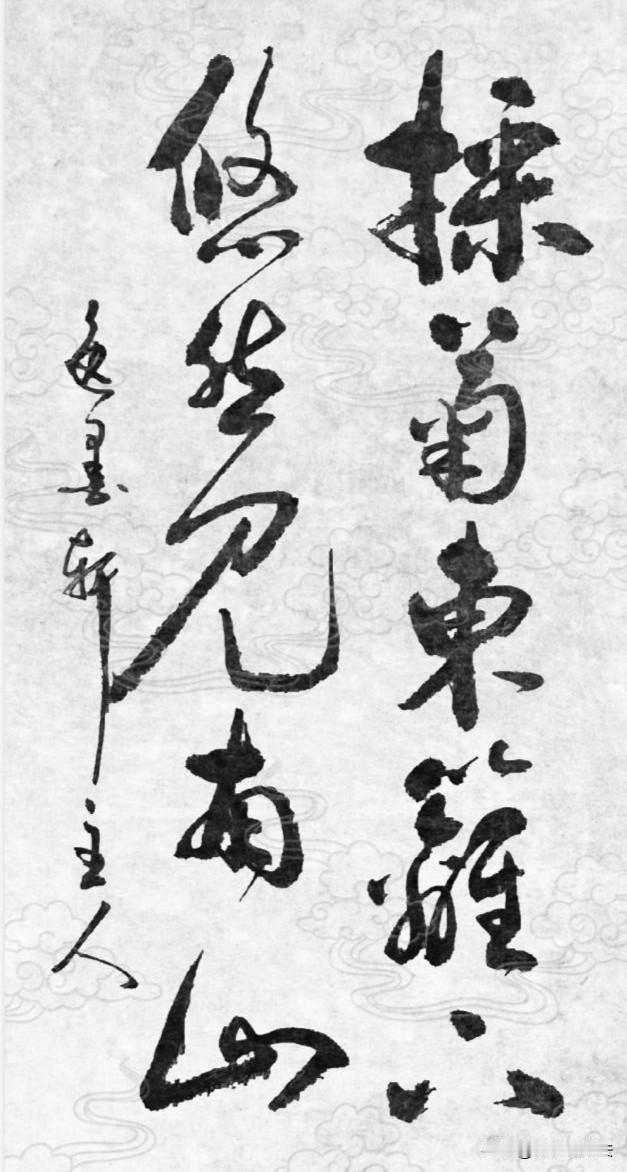 採菊東籬下
悠然見南山
逸墨軒主人